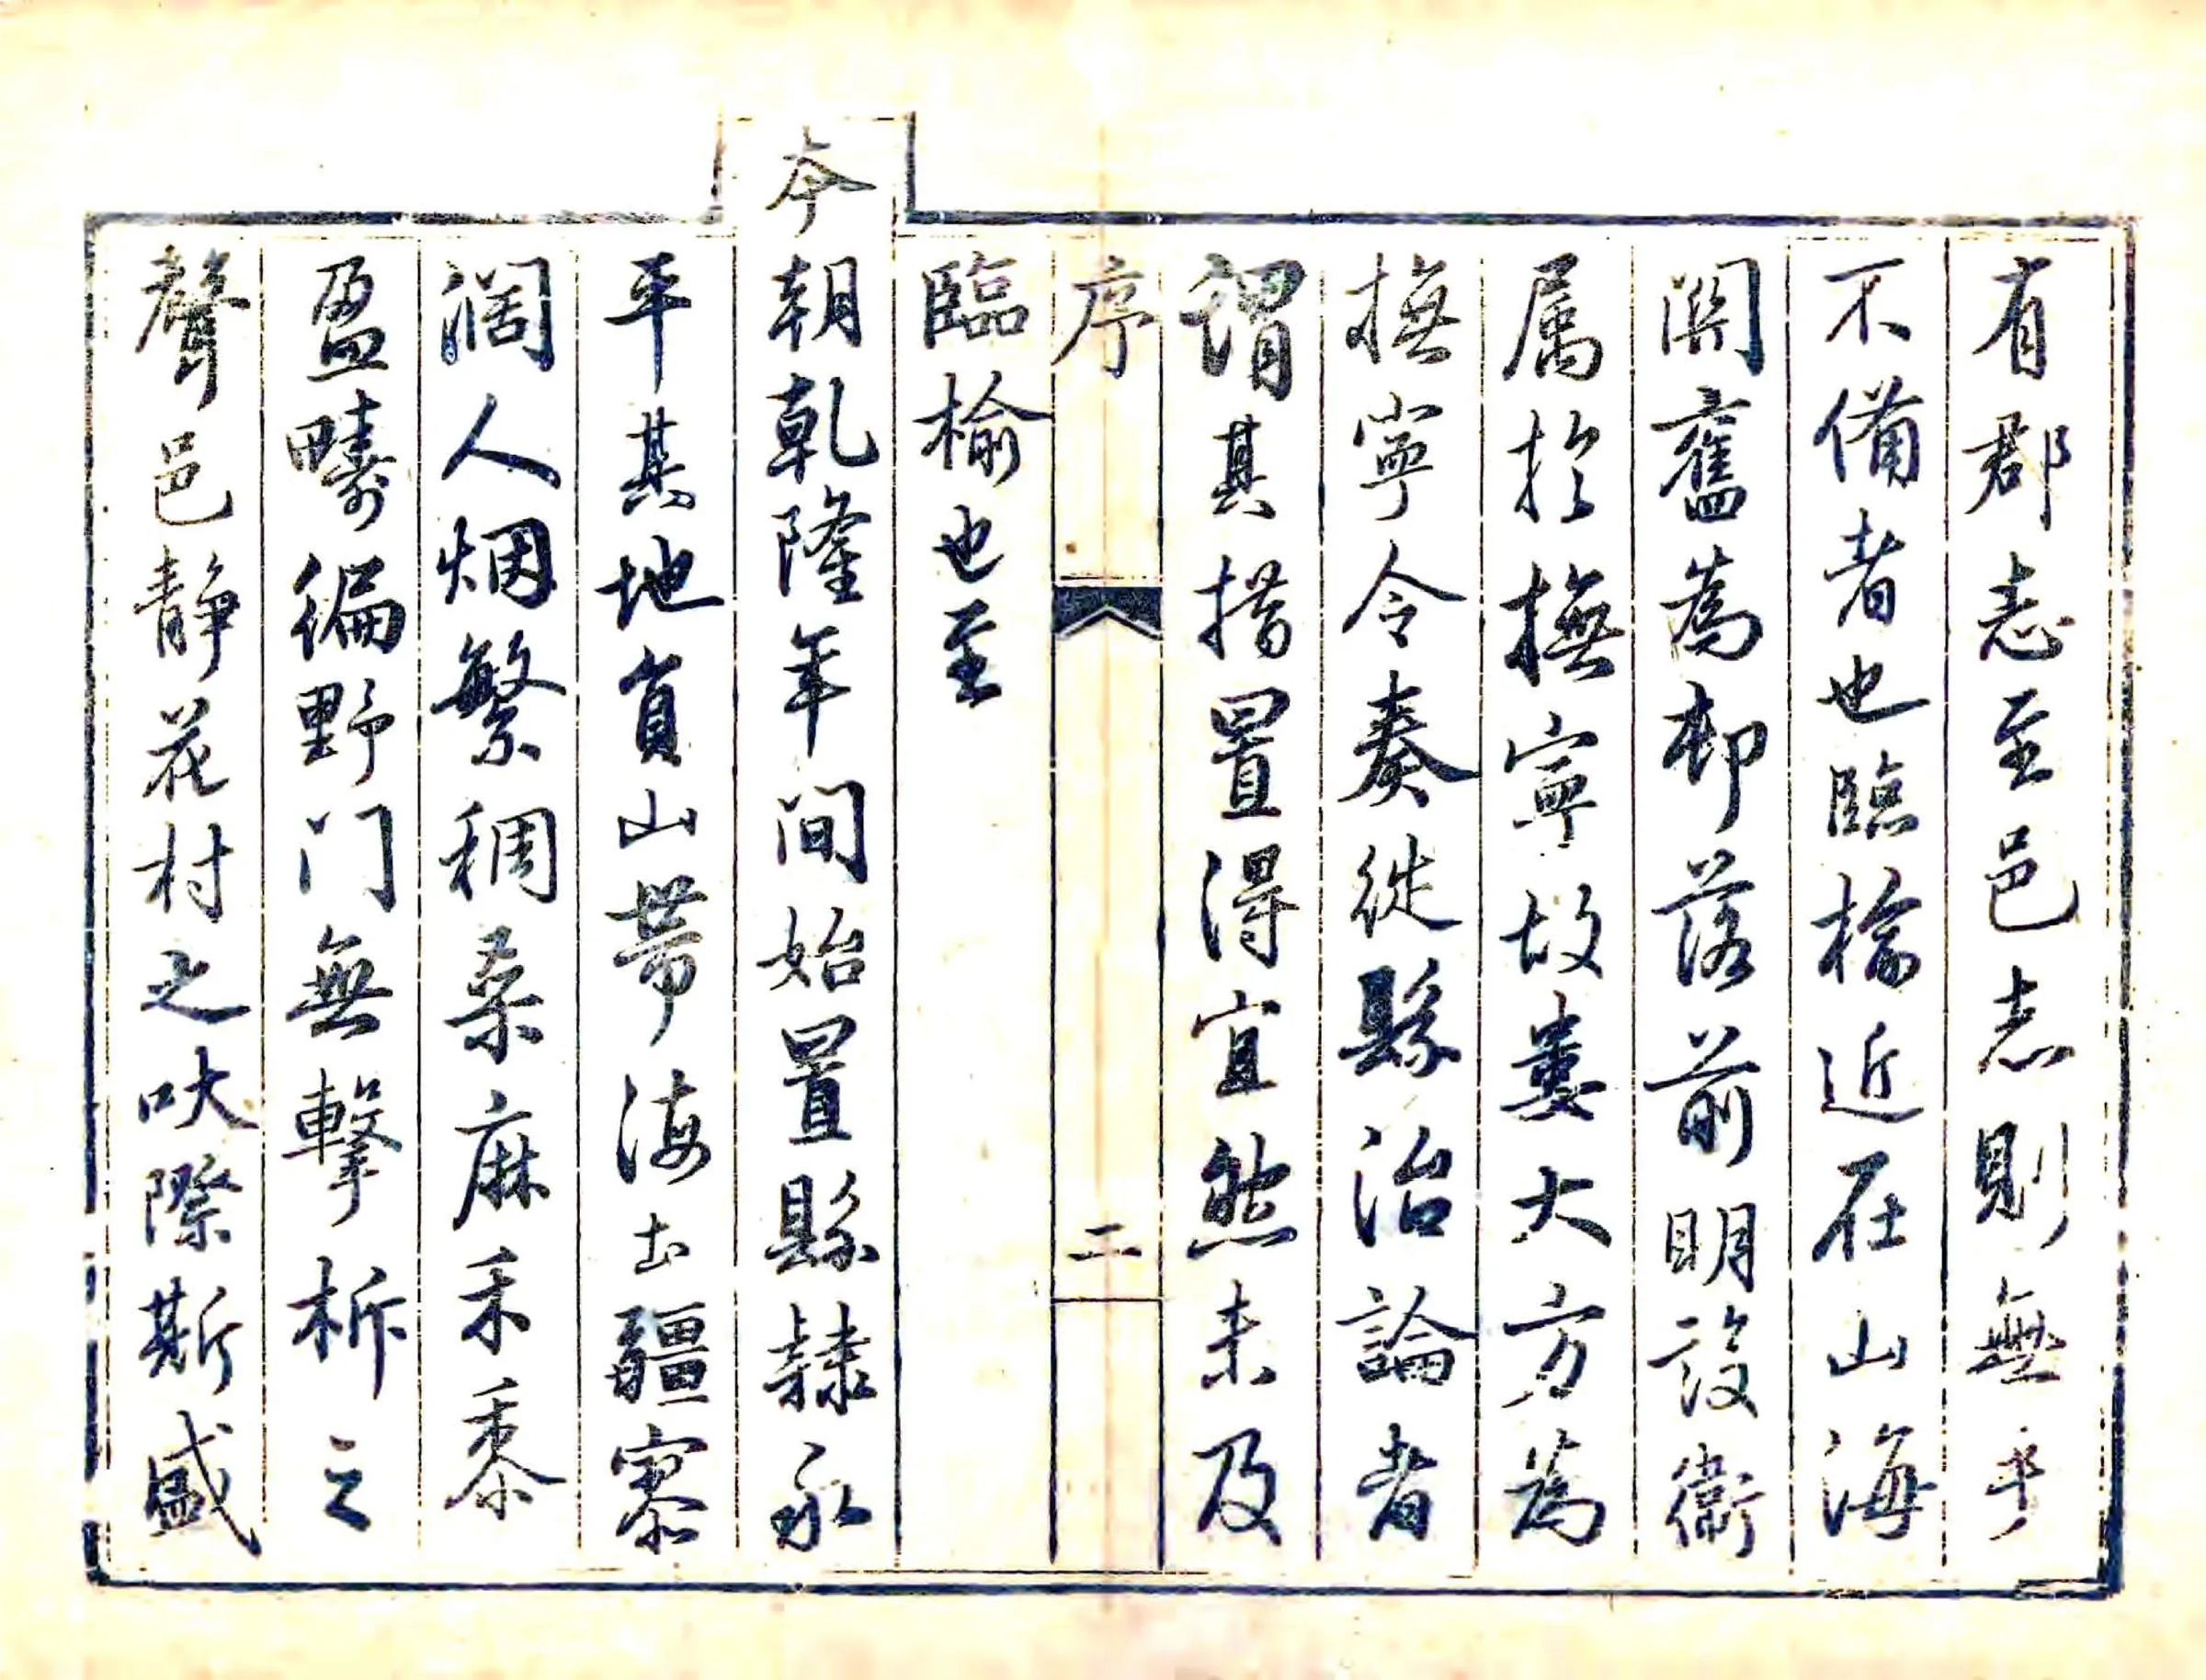 有郡志至邑志則無乎
不備者也臨榆近在山海
關舊為邨落前明設衛
属於撫寧故婁大方為
撫寧令奏徙縣治論者
謂其措置得宜然未及
臨榆也至
序
二
本朝乾隆年间始置縣隸永
平其地負山帶海土疆寥
濶人烟繁稠桑麻禾黍
盈疇徧野门無擊柝之
聲邑静花村之吠際斯盛